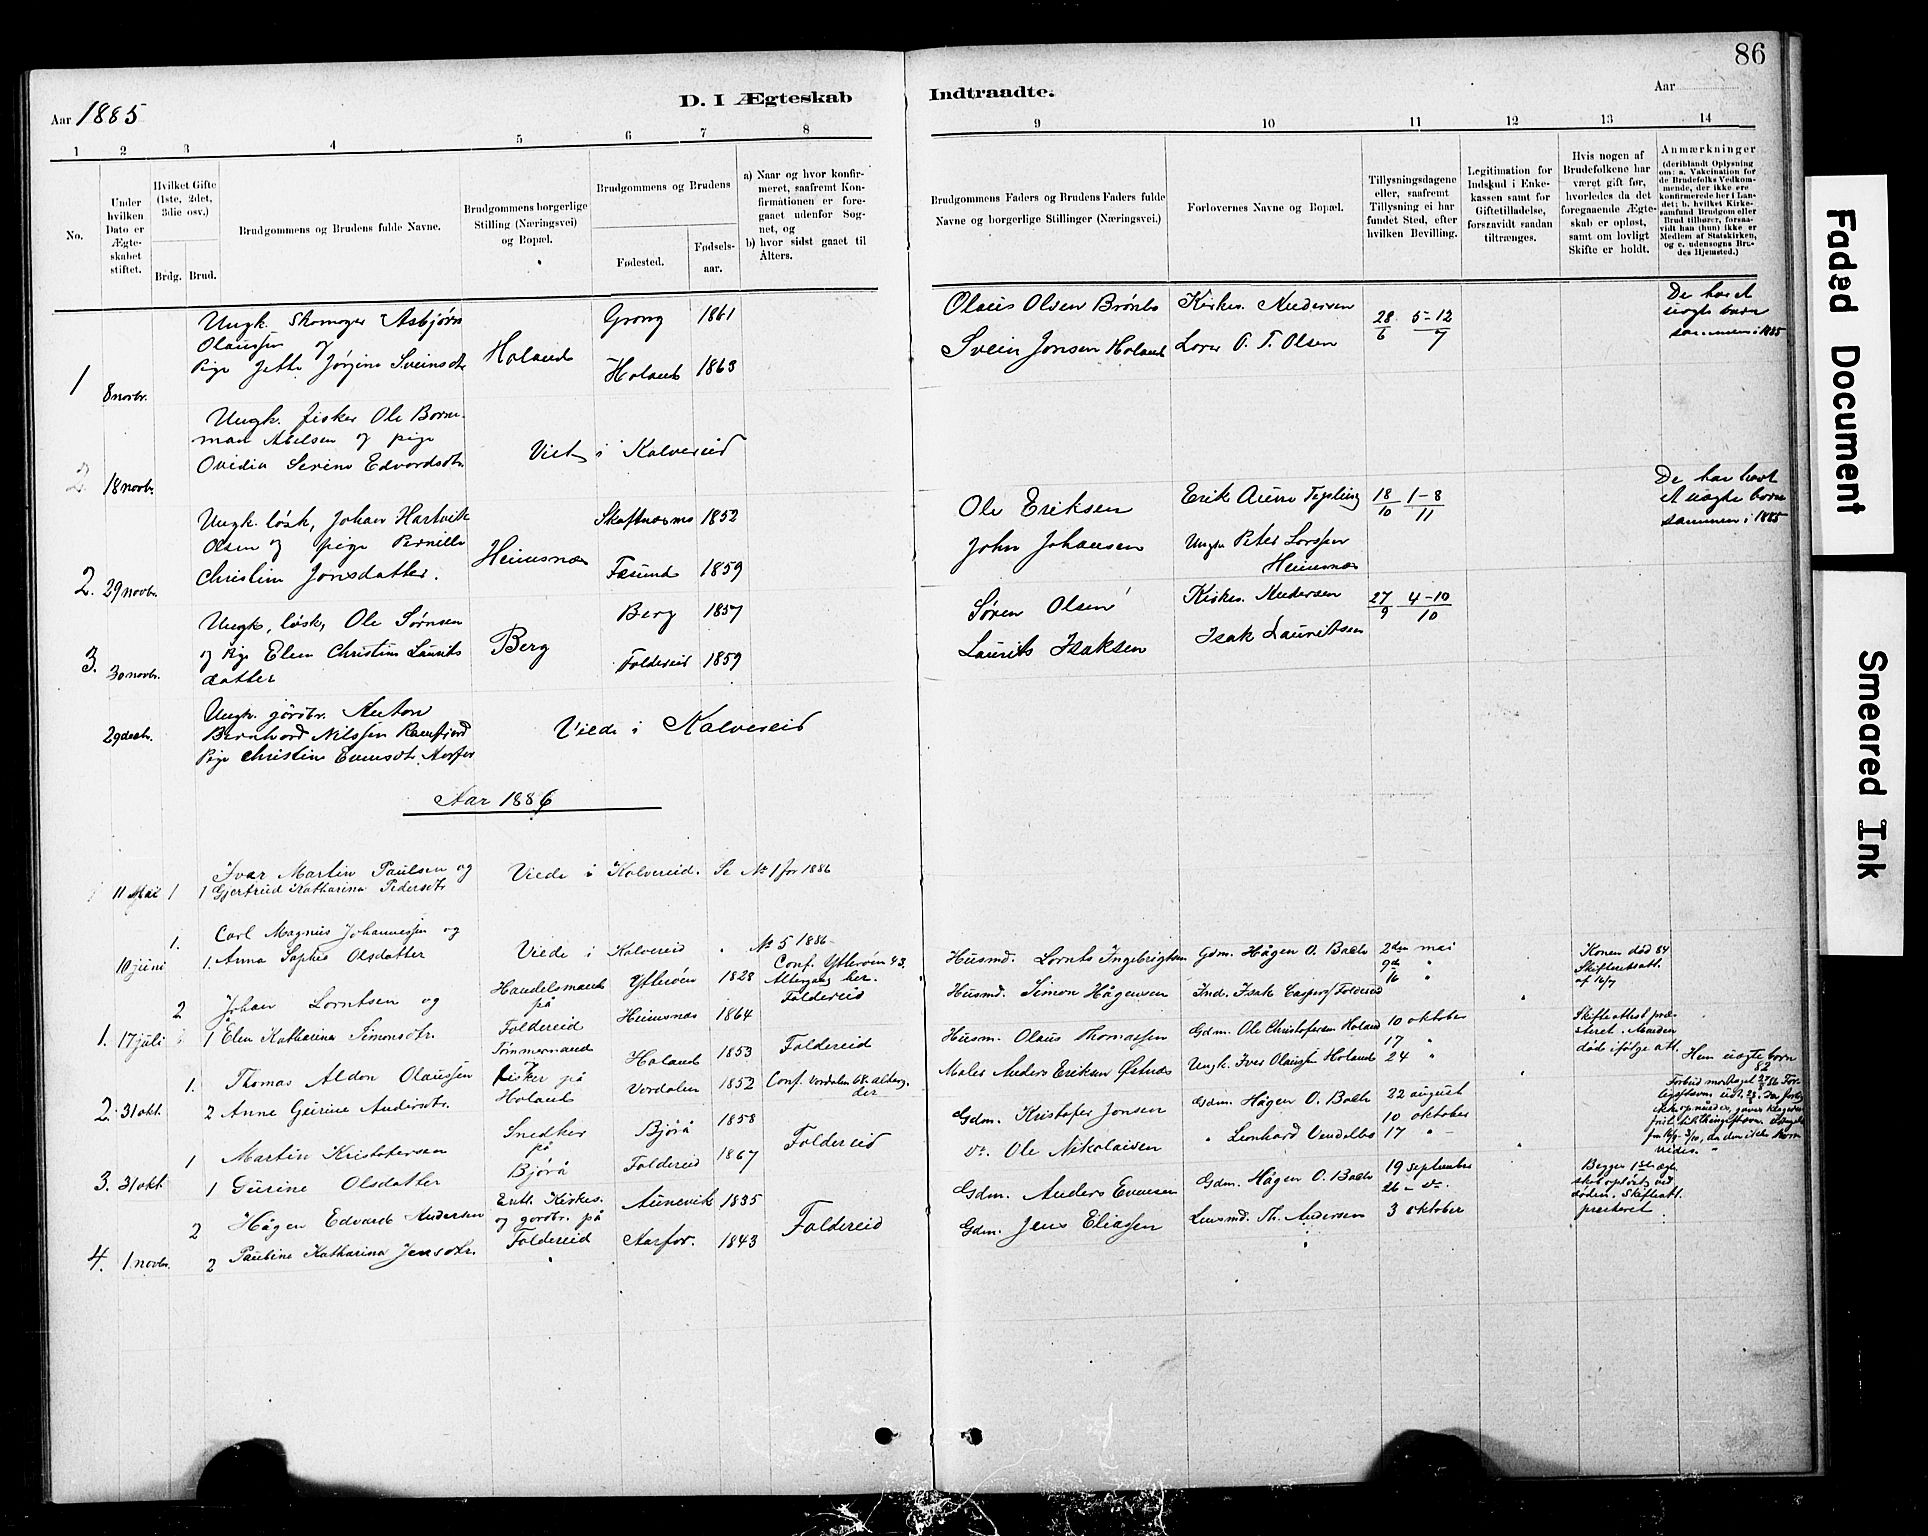 86
Aar 1885
D. I Ægteskab
Indtraadte.
Aar
1 2 3 4 5 6 7 8
9 10 11 12 13 14
No.
Under hvilken Dato er Ægteskabet stiftet.
Hvilket Gifte (1ste, 2det, 3die osv.)
Brdg. Brud.
Brudgommens og Brudens fulde Navne.
Brudgommens borgerlige Stilling (Næringsvei) og Bopæl.
Brudgommens og Brudens
Fødested.
Fødsels-aar.
a) Naar og hvor konfirmeret, saafremt Konfirmationen er foregaaet udenfor Sognet, og
b) hvor sidst gaaet til Alters.
Brudgommens Faders og Brudens Faders fulde
Navne og borgerlige Stillinger (Næringsvei.)
Forlovernes Navne og Bopæl.
Tillysningsdagene eller, saafremt Tillysning ei har fundet Sted, efter hvilken Bevilling.
Legitimation for Indskud i Enkekassen samt for Giftetilladelse, forsaavidt saadan tiltrænges.
Hvis nogen af Brudefolkene har været gift før, hvorledes da det foregaaende Ægteskab er opløst, samt om lovligt Skifte er holdt.
Anmærkninger
(deriblandt Oplysning om: a. Vakcination for de Brudefolks Vedkommende, der ikke ere konfirmerede her i Landet; b. hvilket Kirkesamfund Brudgom eller Brud tilhører, forsaavidt han (hun) ikke er Medlem af Statskirken, og c. udensogns Brudes Hjemsted.)
1 8 novbr.
Ungk. Skomager Asbjørn
Olaussen og
Pige Jette Jørgine Sveinsdtr
Holand
Grong 1861
Holand 1863
Olaus Olsen
Svein Jonsen Holand
Kirkes. Andersen
O. T. Olsen
28/6 5-12/7
De har et
uægte barn
sammen i 1885
2 18 novbr.
Ungk. fisker Ole Borne-
man Abelsen og pige
Ovidia Serine Edvardsdtr
Viet i Kolvereid
2. 29 novbr.
Ungk. løsk, Johan Hartvik
Olsen og pige Pernille
Christine Jonsdatter.
Heimsnæs
Skotnæsmo 1852
1859
Ole Eriksen
John Johansen
Erik Aune
Ungk. Peter Larssen
Heimsnæs
18/10 1-8/11
De har havt
et uægte barn
sammen i 1885
3. 30 novbr.
Ungk, løsk, Ole Sørnsen
og Pige Elen Christine Laurits
datter
Berg
Berg 1857
Foldereid 1859
Søren Olsen
Laurits Isaksen
Kirkes. Andersen
Isak Lauritssen
27/9 4-10/10
29 decbr.
Ungk. gårdbr. Anton
Bernhard Nilssen Ramfjord
Pige Christine Evensdtr. Aarfor
Viede i Kolvereid
Aar 1886
11 Mai 1 1
Ivar Martin Paulsen og
Gjertrud Katharina Pedersdtr
Viede i Kolvereid. Se No 1 for 1886
10 juni 1. 1.
Carl Magnus Johannessen og
Anna Sophie Olsdatter
Viede i Kolvereid No 5 1886
1. 17 juli 2 1
Johan Lorntsen og
Elen Katharina Simonsdtr.
Handelsmand
på
Foldereid
Ytterøen 1828
Heimsnæs 1864
Conf. Ytterøen 43.
Altergang her.
Foldereid
Husmd. Lornts Ingebrigtsen
Husmd. Simon Hågensen
Gdm. Hågen O. Bach
Ind. Isak Caspers. Foldereid
2den mai
9de "
16 "
Konen død 84
Skifteratt.
af 16/7
2. 31 okt. 1. 2
Thomas Aldon Olaussen
Anne Gurine Andersdtr.
Tømmermand
fisker på
Holand
Holand 1853
Verdalen 1852
Foldereid
Conf. Verdalen 68. alterg.
der
Husm. Olaus Thomassen
Maler Anders Eriksen Østnes
Gdm. Ole Christofersen Holand
Ungk. Iver Olausen Holand
10 oktober
17 "
24 "
Skifteattest præ-
steret. Manden
døde ifølge att.
Hem uægte born
82
3. 31 okt. 1 1
Martin Kristofersen
Gurine Olsdatter
Snedker
på
Bjørå
Bjørå 1858
Foldereid 1867
Foldereid
Gdm. Kristofer Jonsen
do. Ole Nikolaisen
Gdm. Hågen O. Bach
" Leonhard Vendelbo
22 august
10 oktober
17 "
4. 1 novbr. 2 2
Hågen Edvard Andersen
Pauline Katharina Jensdtr.
Enth. Kirkes.
og gårdbr. på
Foldereid
Aunevik 1835
Aarfor. 1843
Foldereid
Gdm. Anders Evensen
Gdm. Jens Eliassen
Gdm. Hågen O. Bach
Lensmd. Th. Andersen
19 september
26 - do.
3 oktober
Begges 1ste ægte-
skab opløst ved
døden. Skifteatt.
presteret
Faded Document
Smeared Ink